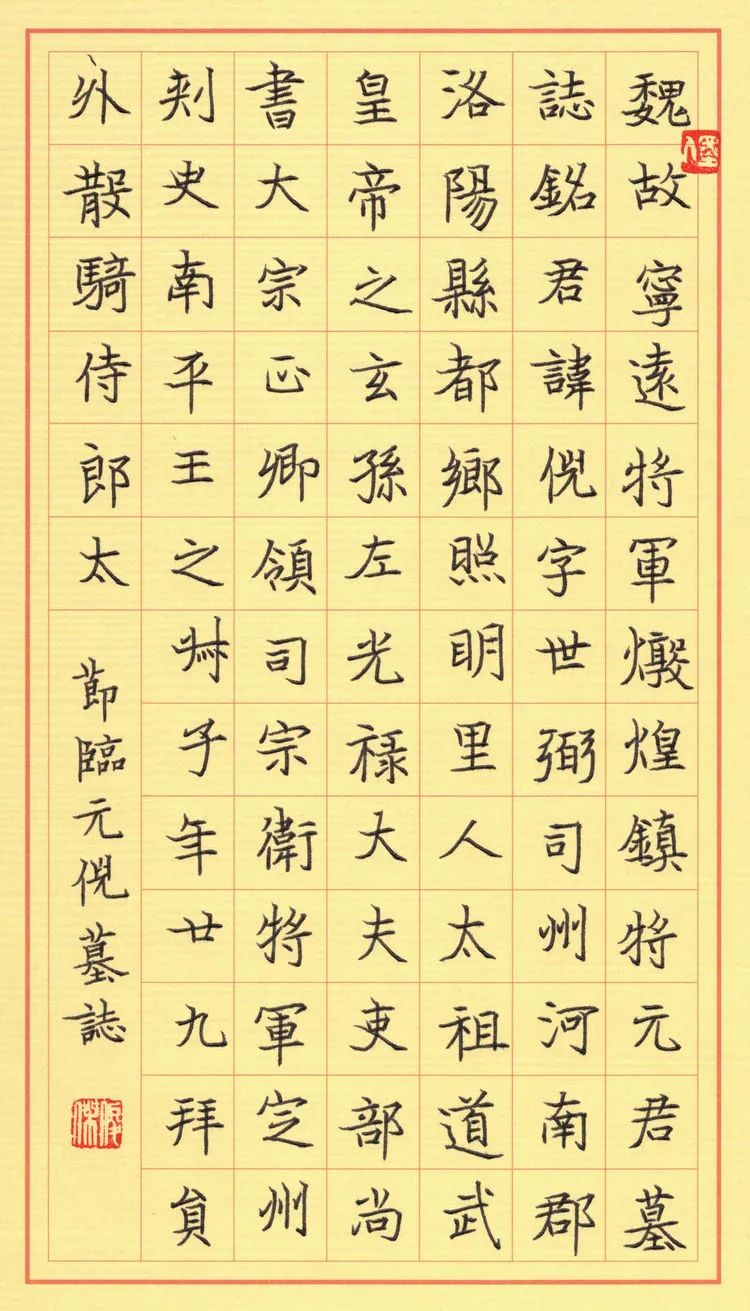 魏故寧遠將軍燉煌鎮將元君墓
誌銘君諱倪字世弼司州河南郡
洛陽縣都鄉照明里人太祖道武
皇帝之玄孫左光祿大夫吏部尚
書大宗正卿領司宗衛將軍定州
刺史南平王之叔子年廿九拜員
外散騎侍郎太
節臨元倪墓誌